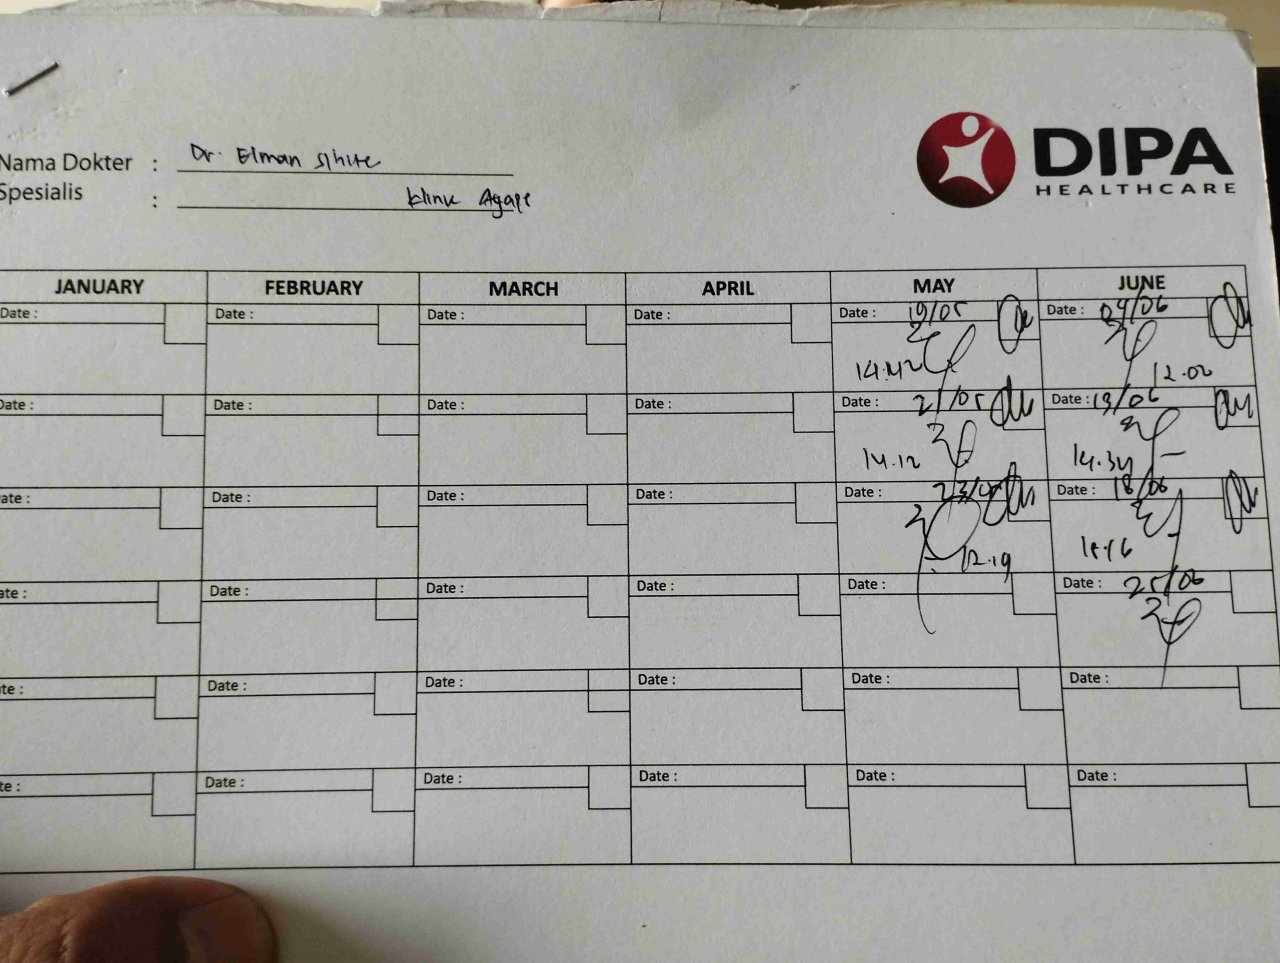 DIPA
HEALTHCARE
Nama Dokter : Dr. Elman Sihite
Spesialis : klinik Agape
JANUARY FEBRUARY MARCH APRIL MAY JUNE
Date : Date : Date : Date : Date : 19/05 Date : 04/06
14.42 12.02
Date : Date : Date : Date : Date : 21/05 Date : 13/06
14.12 14.34
ate : Date : Date : Date : Date : 23/05 Date : 18/06
12.19
ate : Date : Date : Date : Date : Date : 25/06
te : Date : Date : Date : Date : Date :
te : Date : Date : Date : Date : Date :